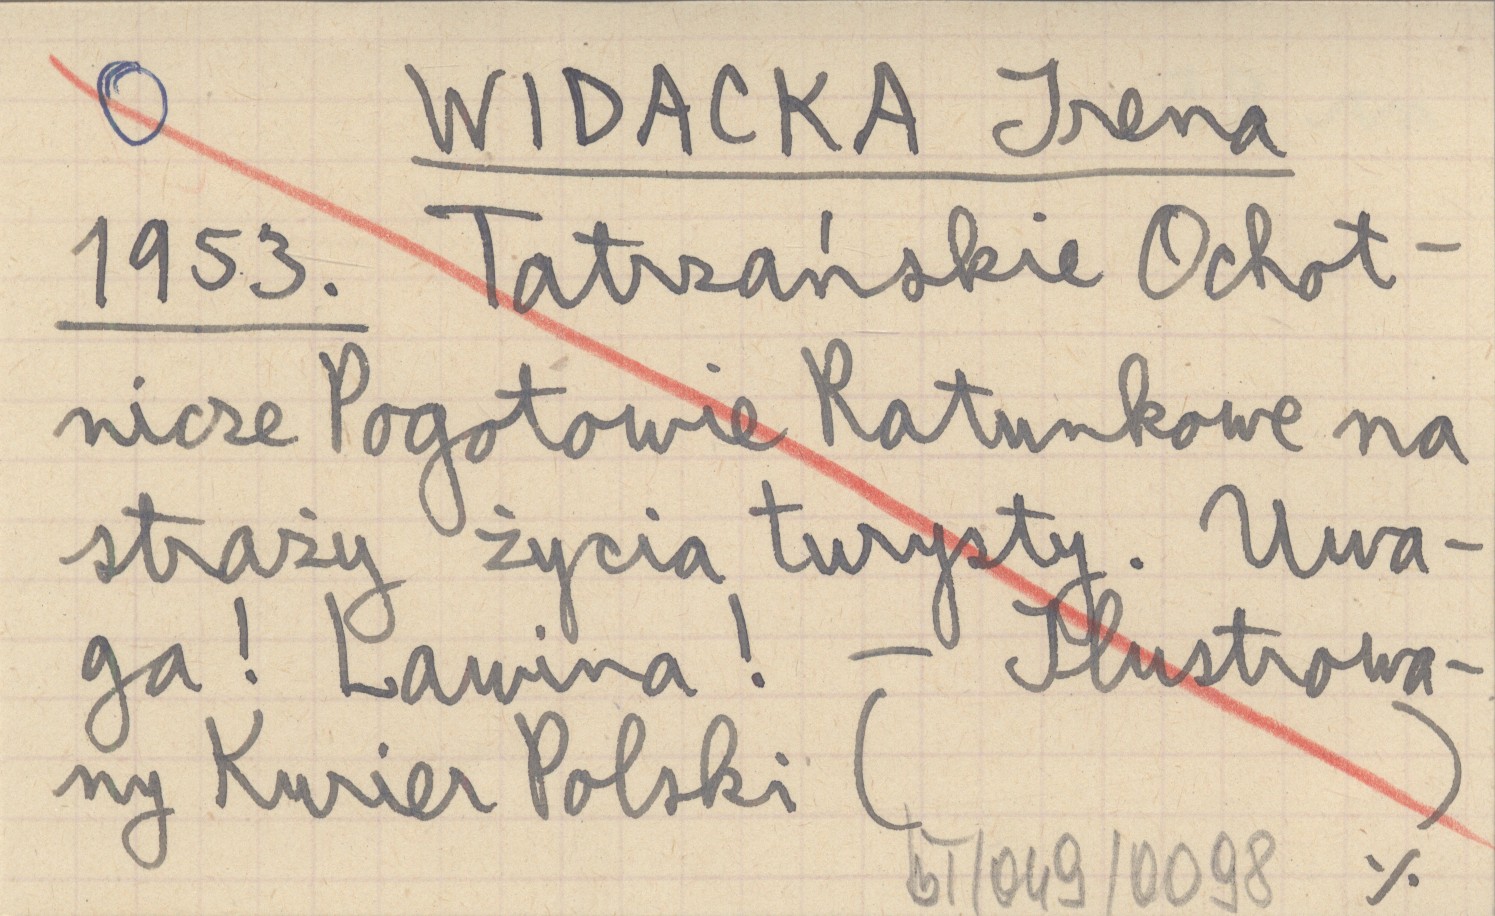 WIDACKA Irena
1953. Tatrzańskie Ochot-
nicze Pogotowie Ratunkowe na
straży życia turysty. Uwa-
ga! Lawina! – Ilustrowa-
ny Kurier Polski (          )
bT/049/0098 ./.